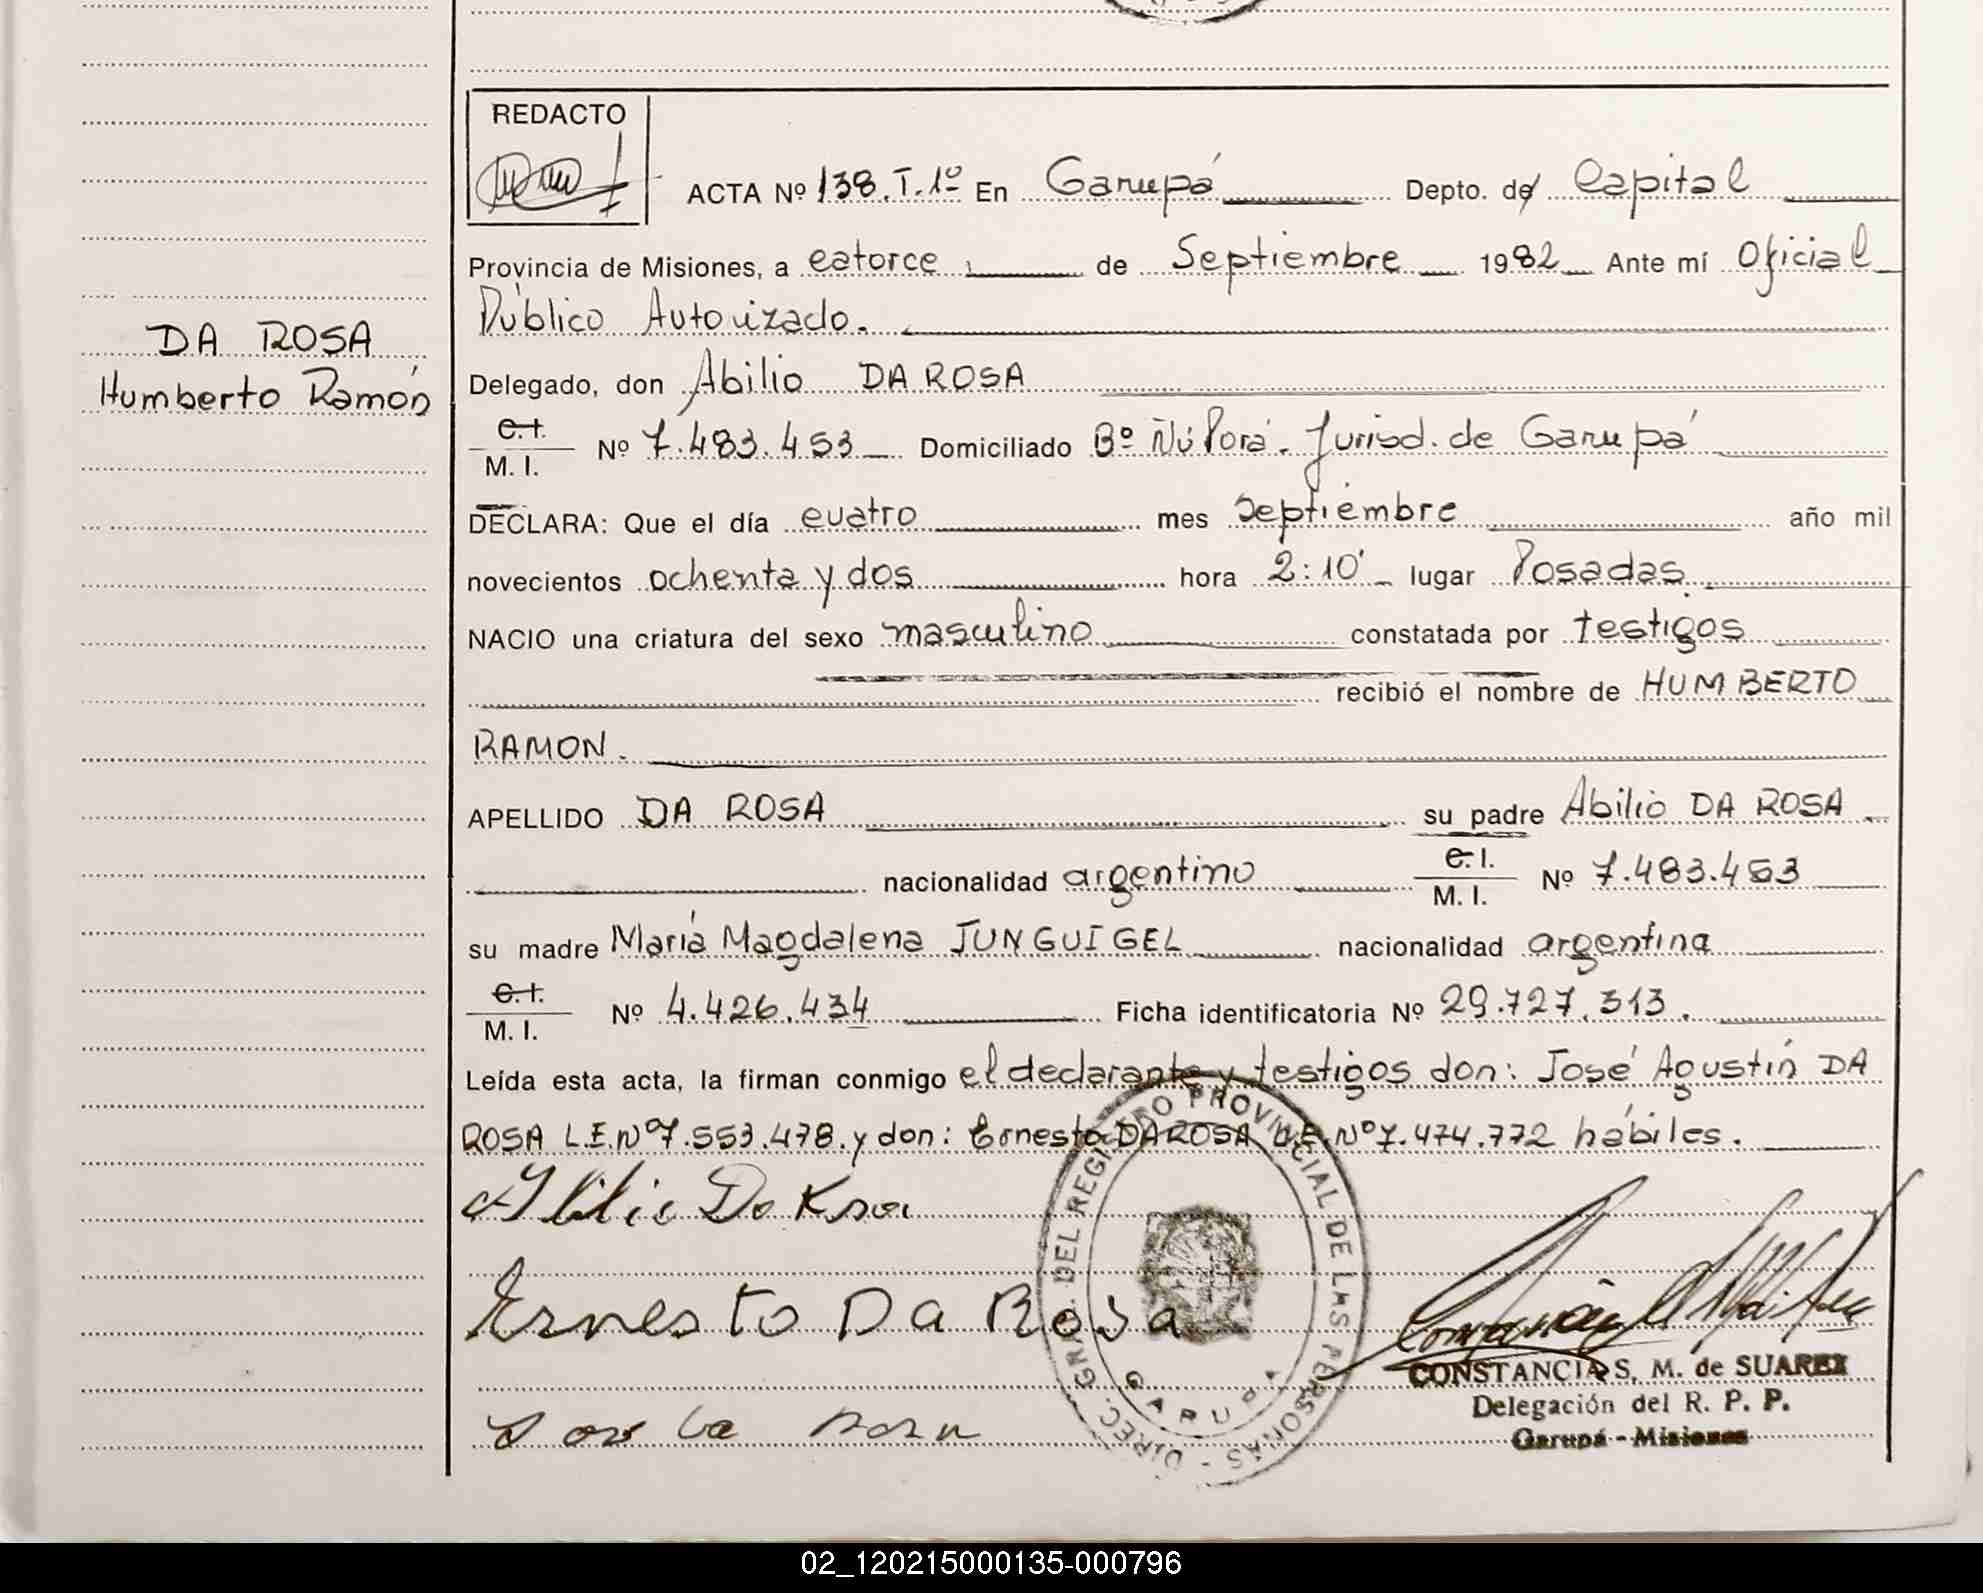 REDACTO
ACTA Nº 138.T.1º En Garupá Depto. de Capital
Provincia de Misiones, a catorce de Septiembre 1982 Ante mí Oficial
Público Autorizado.
DA ROSA
Humberto Ramón
Delegado, don Abilio DA ROSA
C.I.
M. I. Nº 7.483.453 Domiciliado Bº Ñú Porá. Jurisd. de Garupá
DECLARA: Que el día cuatro mes Septiembre año mil
novecientos ochenta y dos hora 2:10' lugar Posadas.
NACIO una criatura del sexo masculino constatada por testigos
recibió el nombre de HUMBERTO
RAMON.
APELLIDO DA ROSA su padre Abilio DA ROSA
nacionalidad argentino C.I. M. I. Nº 7.483.453
su madre María Magdalena JUNGUIGEL nacionalidad argentina
C.I.
M. I. Nº 4.426.434 Ficha identificatoria Nº 29.727.313.
Leída esta acta, la firman conmigo el declarante y testigos don: José Agustín DA
ROSA L.E.Nº7.553.478. y don: Ernesto DA ROSA L.E.Nº7.474.772 hábiles.
DIREC. GRAL. DEL REGISTRO PROVINCIAL DE LAS PERSONAS -
GARUPA
Abilio Da Rosa
Ernesto Da Rosa
CONSTANCIA S. M. de SUAREZ
Delegación del R. P. P.
Garupá - Misiones
02_120215000135-000796